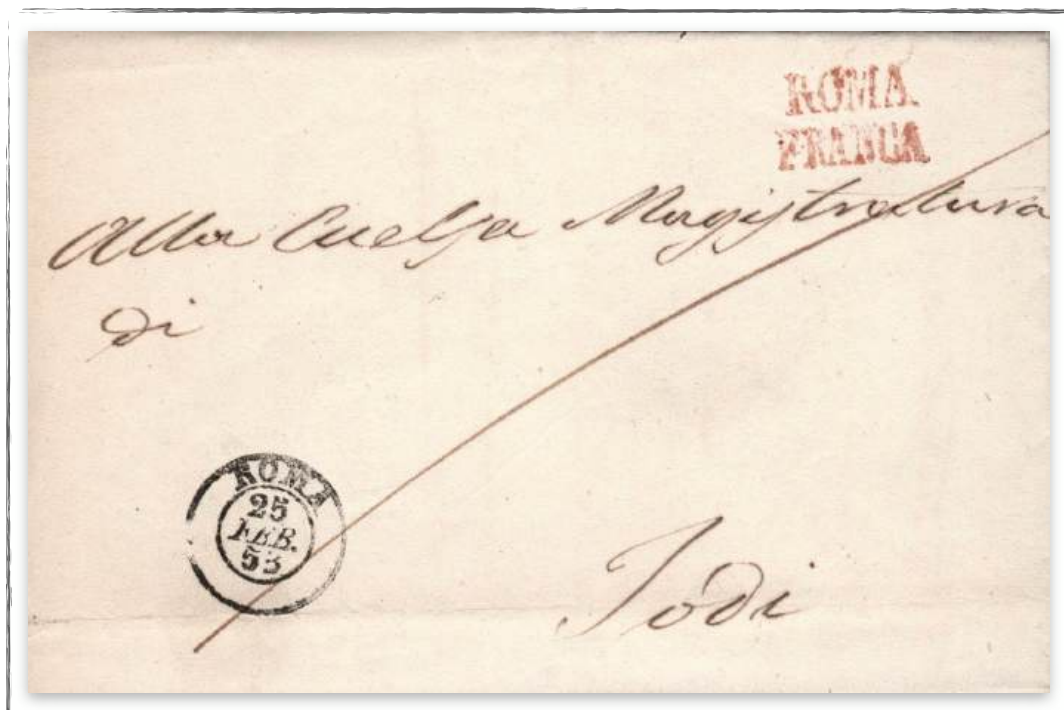 ROMA
FRANCA
Alla Eccelsa Magistratura
di
ROMA
25
FEB.
53
Todi